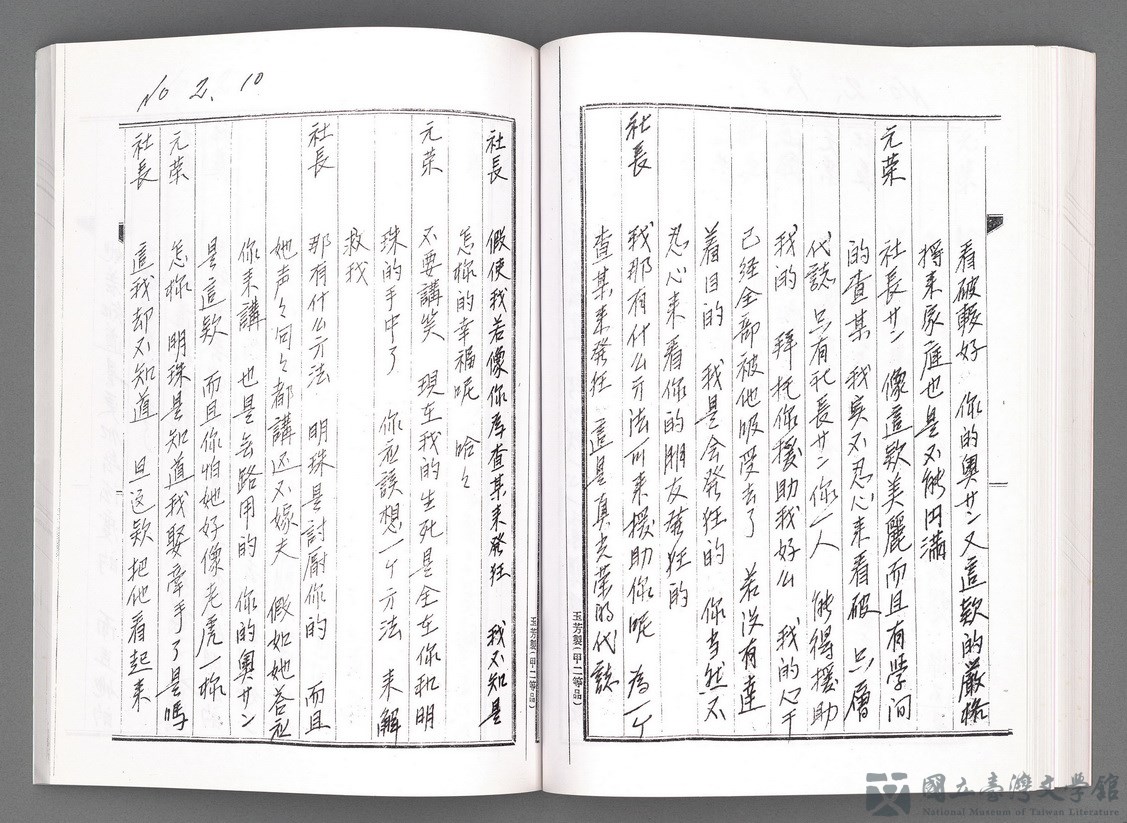 看破較好 你的奧サン又這款的嚴格
將來家庭也是不能円滿
元荣 社長サン 像這款美麗而且有學问
的查某 我实不忍心来看破 只層
代誌 只有社長サン你一人 能得援助
我的 拜托你援助我好么 我的心干
已经全部被他吸受去了 若没有達
着目的 我是会發狂的 你当然不
忍心来看你的朋友發狂的
社長 我那有什么方法可来援助你呢 為一个
查某来發狂 這是真光荣的代誌
玉芳製(甲二等品)
No 2. 10
社長 假使我若像你為查某来發狂 我不知是
怎樣的幸福呢 哈々
元荣 不要講笑 現在我的生死是全在你和明
珠的手中了 你应該想一个方法 来解
救我
社長 那有什么方法 明珠是討厭你的 而且
她声々句々都講还不嫁夫 假如她答应
你来講 也是无路用的 你的奧サン
是這款 而且你怕她好像老虎一樣
元荣 怎樣 明珠是知道我娶牽手了是嗎
社長 這我却不知道 旦这款把他看起来
玉芳製(甲二等品)
國立臺灣文學館
National Museum of Taiwan Literature